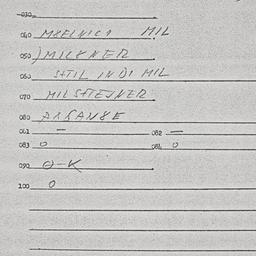 030
040 MRELNICI MIL
050 ) MILKNER
060 STIL IN DI MIL
070 MILSTEJNER
080 ARRANŽE
081 — 082 —
083 0 084 0
090 O-K
100 0